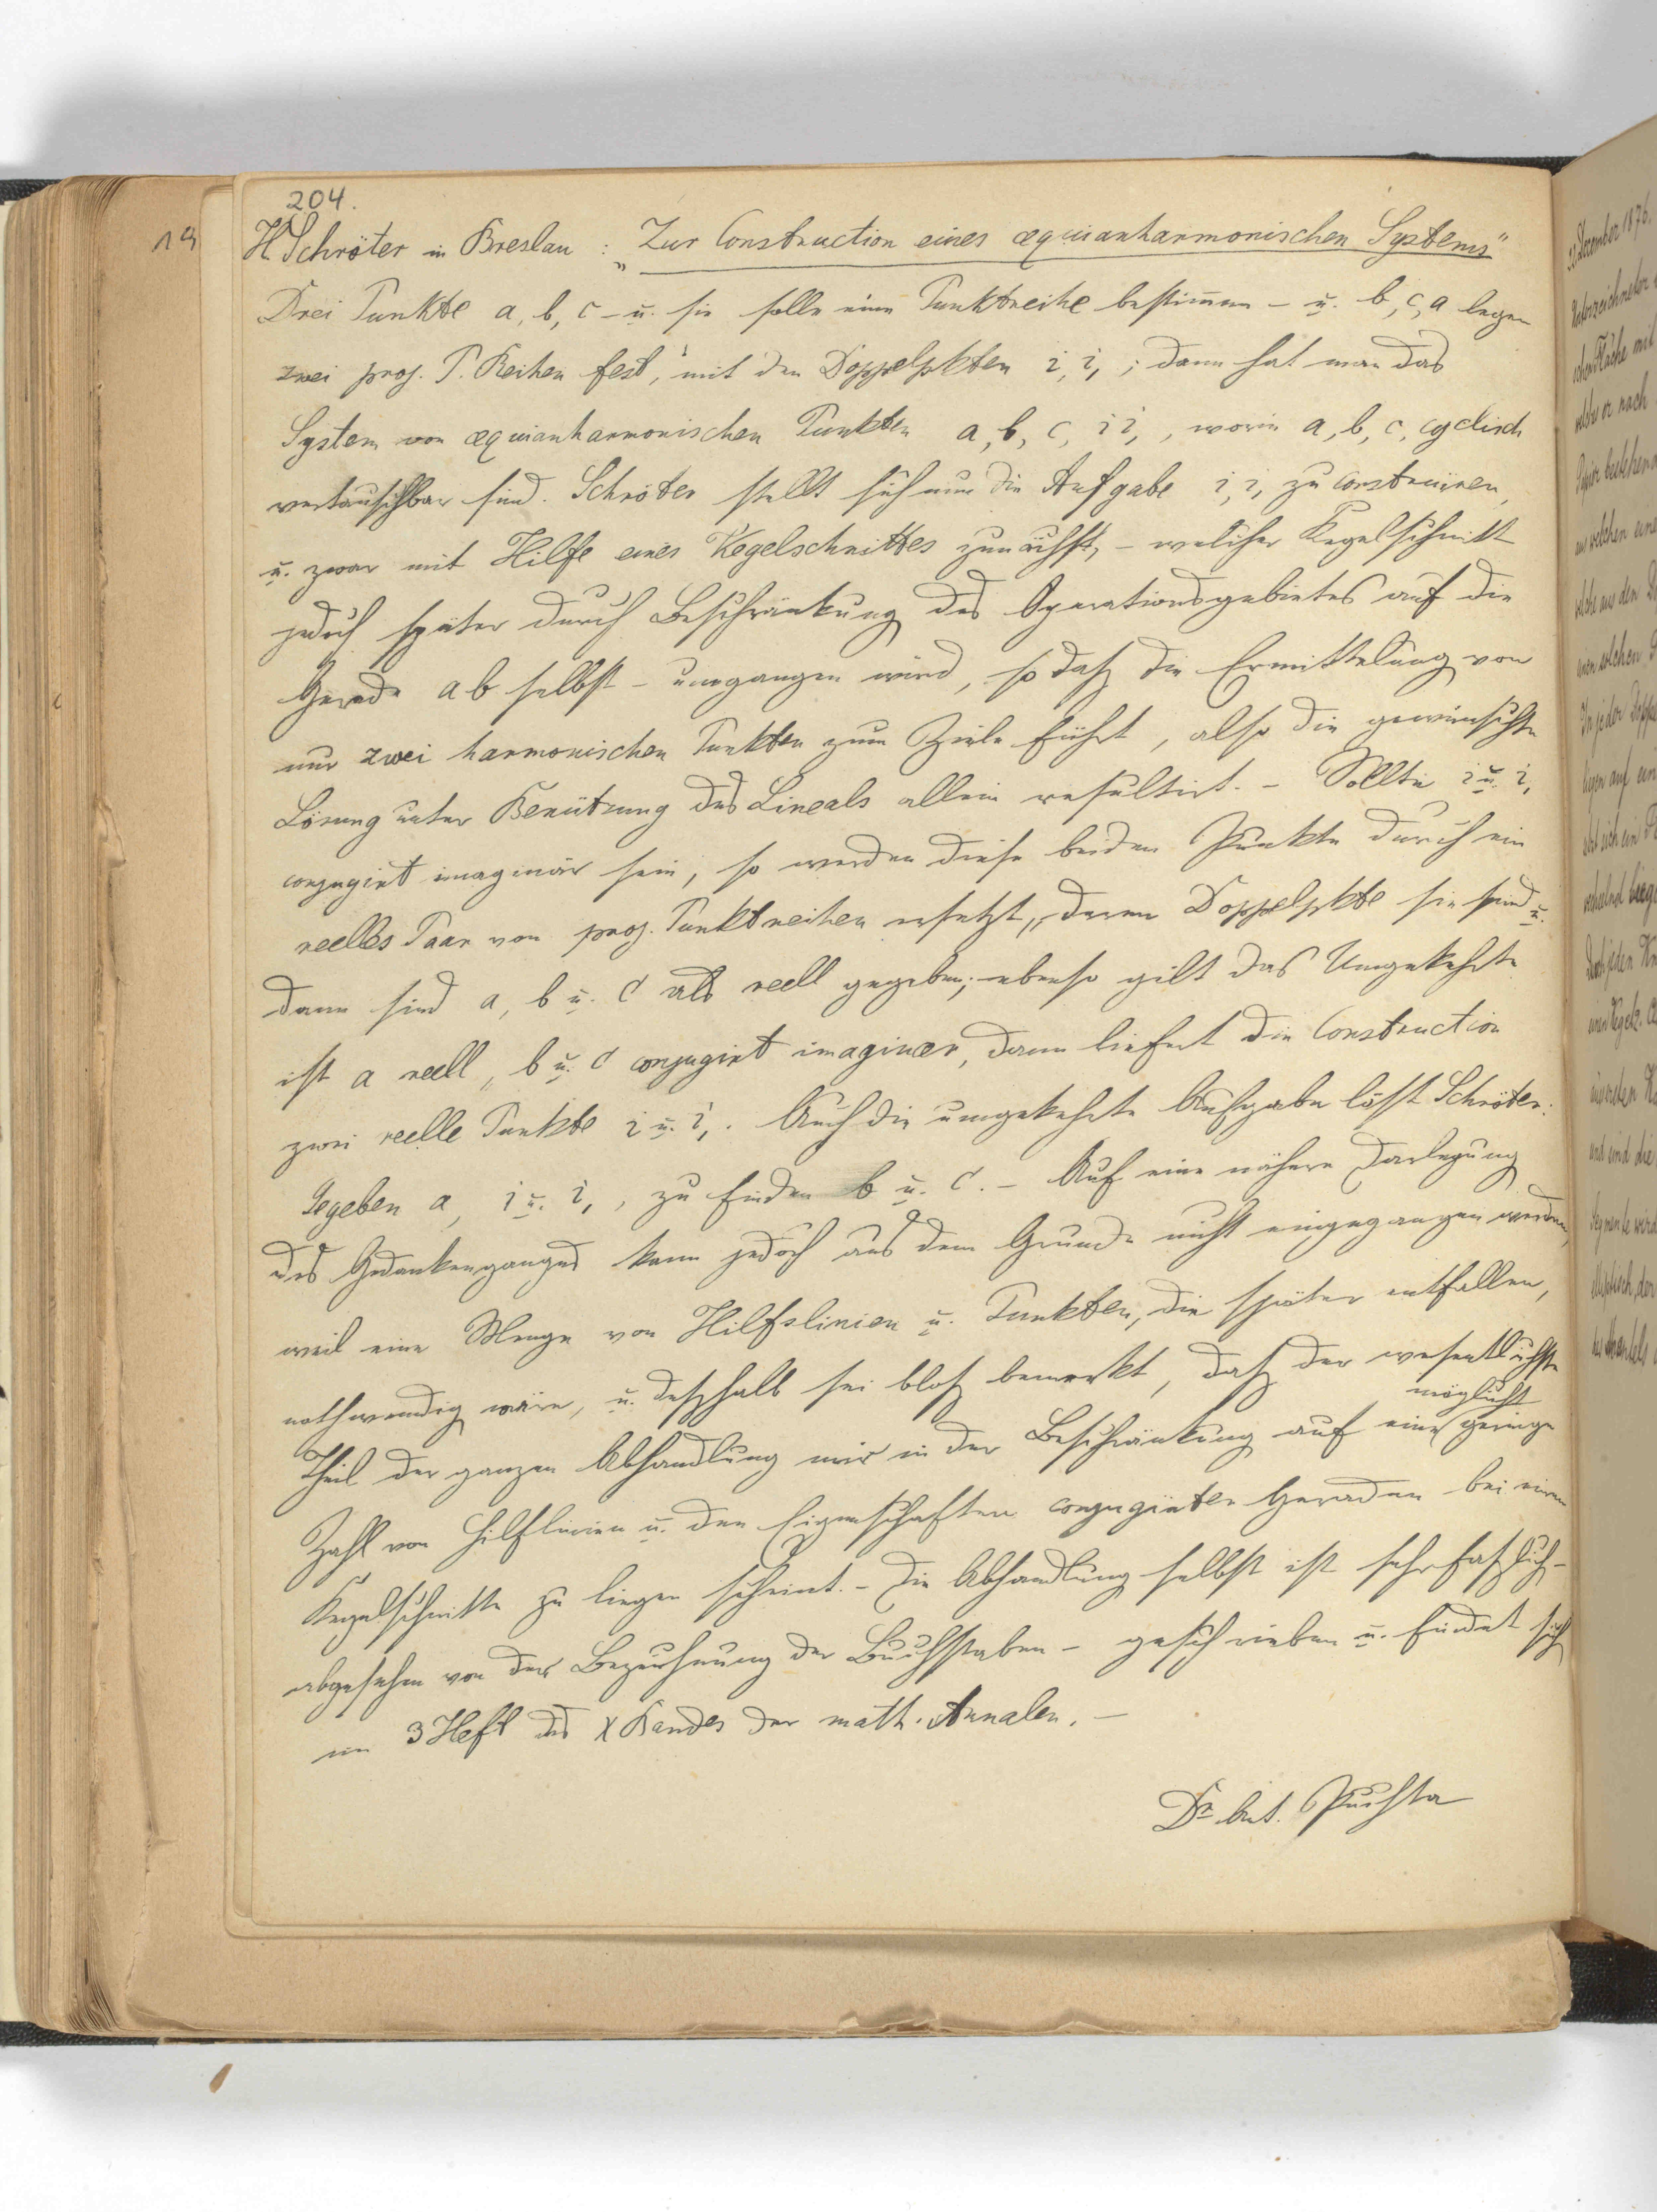 204.
19
H Schröter in Breslau : „Zur Construction eines æquianharmonischen Systems"
Drei Punkte a, b, c – u. sie solle eine Punktreihe bestimmen – u. b, c, a legen
zwei proj. P. Reihen fest, mit den Doppelpkten i, i, ; dann hat man das
System von æquianharmonischen Punkten a, b, c, i i, , worin a, b, c, cyclisch
vertauschbar sind. Schröter stellt sich nun die Aufgabe i, i, zu construiren,
u. zwar mit Hilfe eines Kegelschnittes zunächst, – welcher Kegelschnitt
jedoch später durch Beschränkung des Operationsgebietes auf die
Gerade ab selbst – umgangen wird, so daß die Ermittelung von
nur zwei harmonischen Punkten zum Ziele führt, also die gewünschte
Lösung unter Benützung des Lineals allein resultirt. – Sollte i u. i,
conjugirt imaginär sein, so werden diese beiden Punkte durch ein
reelles Paar von proj. Punktreihen ersetzt, deren Doppelpkte sie sind u.
dann sind a, b u. c als reell gegeben; ebenso gilt das Umgekehrte
ist a reell, b u. c conjugirt imaginær, dann liefert die Construction
zwei reelle Punkte i u. i, . Auch die umgekehrte Aufgabe löst Schröter:
Gegeben a, i u. i, , zu finden b u. c. – Auf eine nähere Darlegung
des Gedankenganges kann jedoch aus dem Grunde nicht eingegangen werden,
weil eine Menge von Hilfslinien u. Punkten, die später entfallen,
nothwendig wäre, u. deßhalb sei bloß bemerkt, daß der wesentlichste
möglichst
Theil der ganzen Abhandlung mir in der Beschränkung auf eine geringe
Zahl von Hilflinien u. den Eigenschaften conjugirter Geraden bei einem
Kegelschnitte zu liegen scheint. – Die Abhandlung selbst ist sehr faßlich –
abgesehen von der Bezeichnung der Buchstaben – geschrieben u. findet sich
im 3 Heft des X Bandes der math. Annalen. –
Dr Ant. Puchta
22. December 1876.